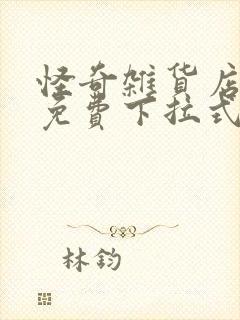 怪奇雑貨店
免費下拉式
林鈞